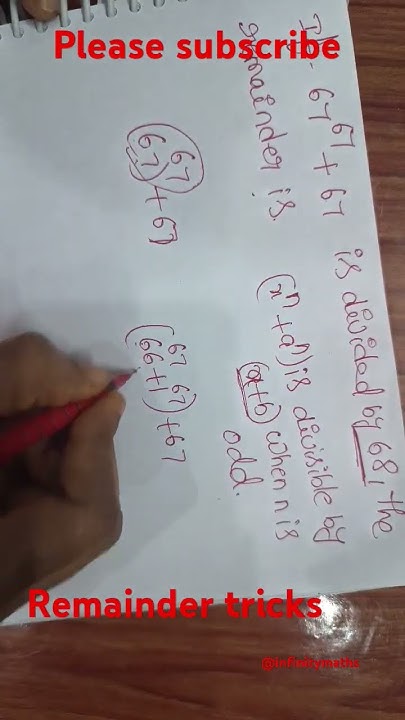 Please subscribe
If 67^67 + 67 is divided by 68, the
remainder is.
(x^n + a^n) is divisible by
(a+b) when n is
odd.
(67^67) + 67
(66^67 + 1^67) + 67
Remainder tricks
@infinitymaths